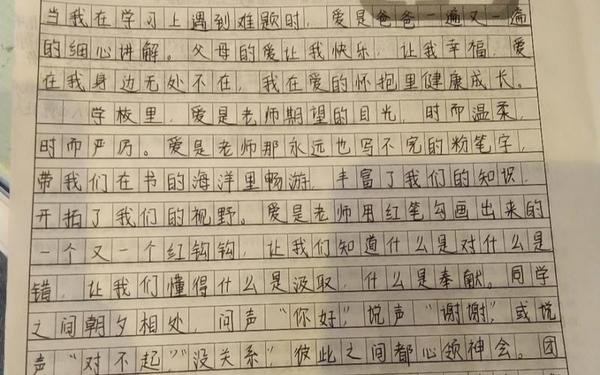 当我在学习上遇到难题时，爱是爸爸一遍又一遍
的细心讲解。父母的爱让我快乐，让我幸福，爱
在我身边无处不在，我在爱的怀抱里健康成长。
学校里，爱是老师期望的目光，时而温柔，
时而严厉。爱是老师那永远也写不完的粉笔字，
带我们在书的海洋里畅游，丰富了我们的知识，
开拓了我们的视野。爱是老师用红笔勾画出来的
一个又一个红钩钩，让我们知道什么是对什么是
错，让我们懂得什么是汲取，什么是奉献。同学
之间朝夕相处，问声“你好”，说声“谢谢”，或说
声“对不起”“没关系”，彼此之间都心领神会。团